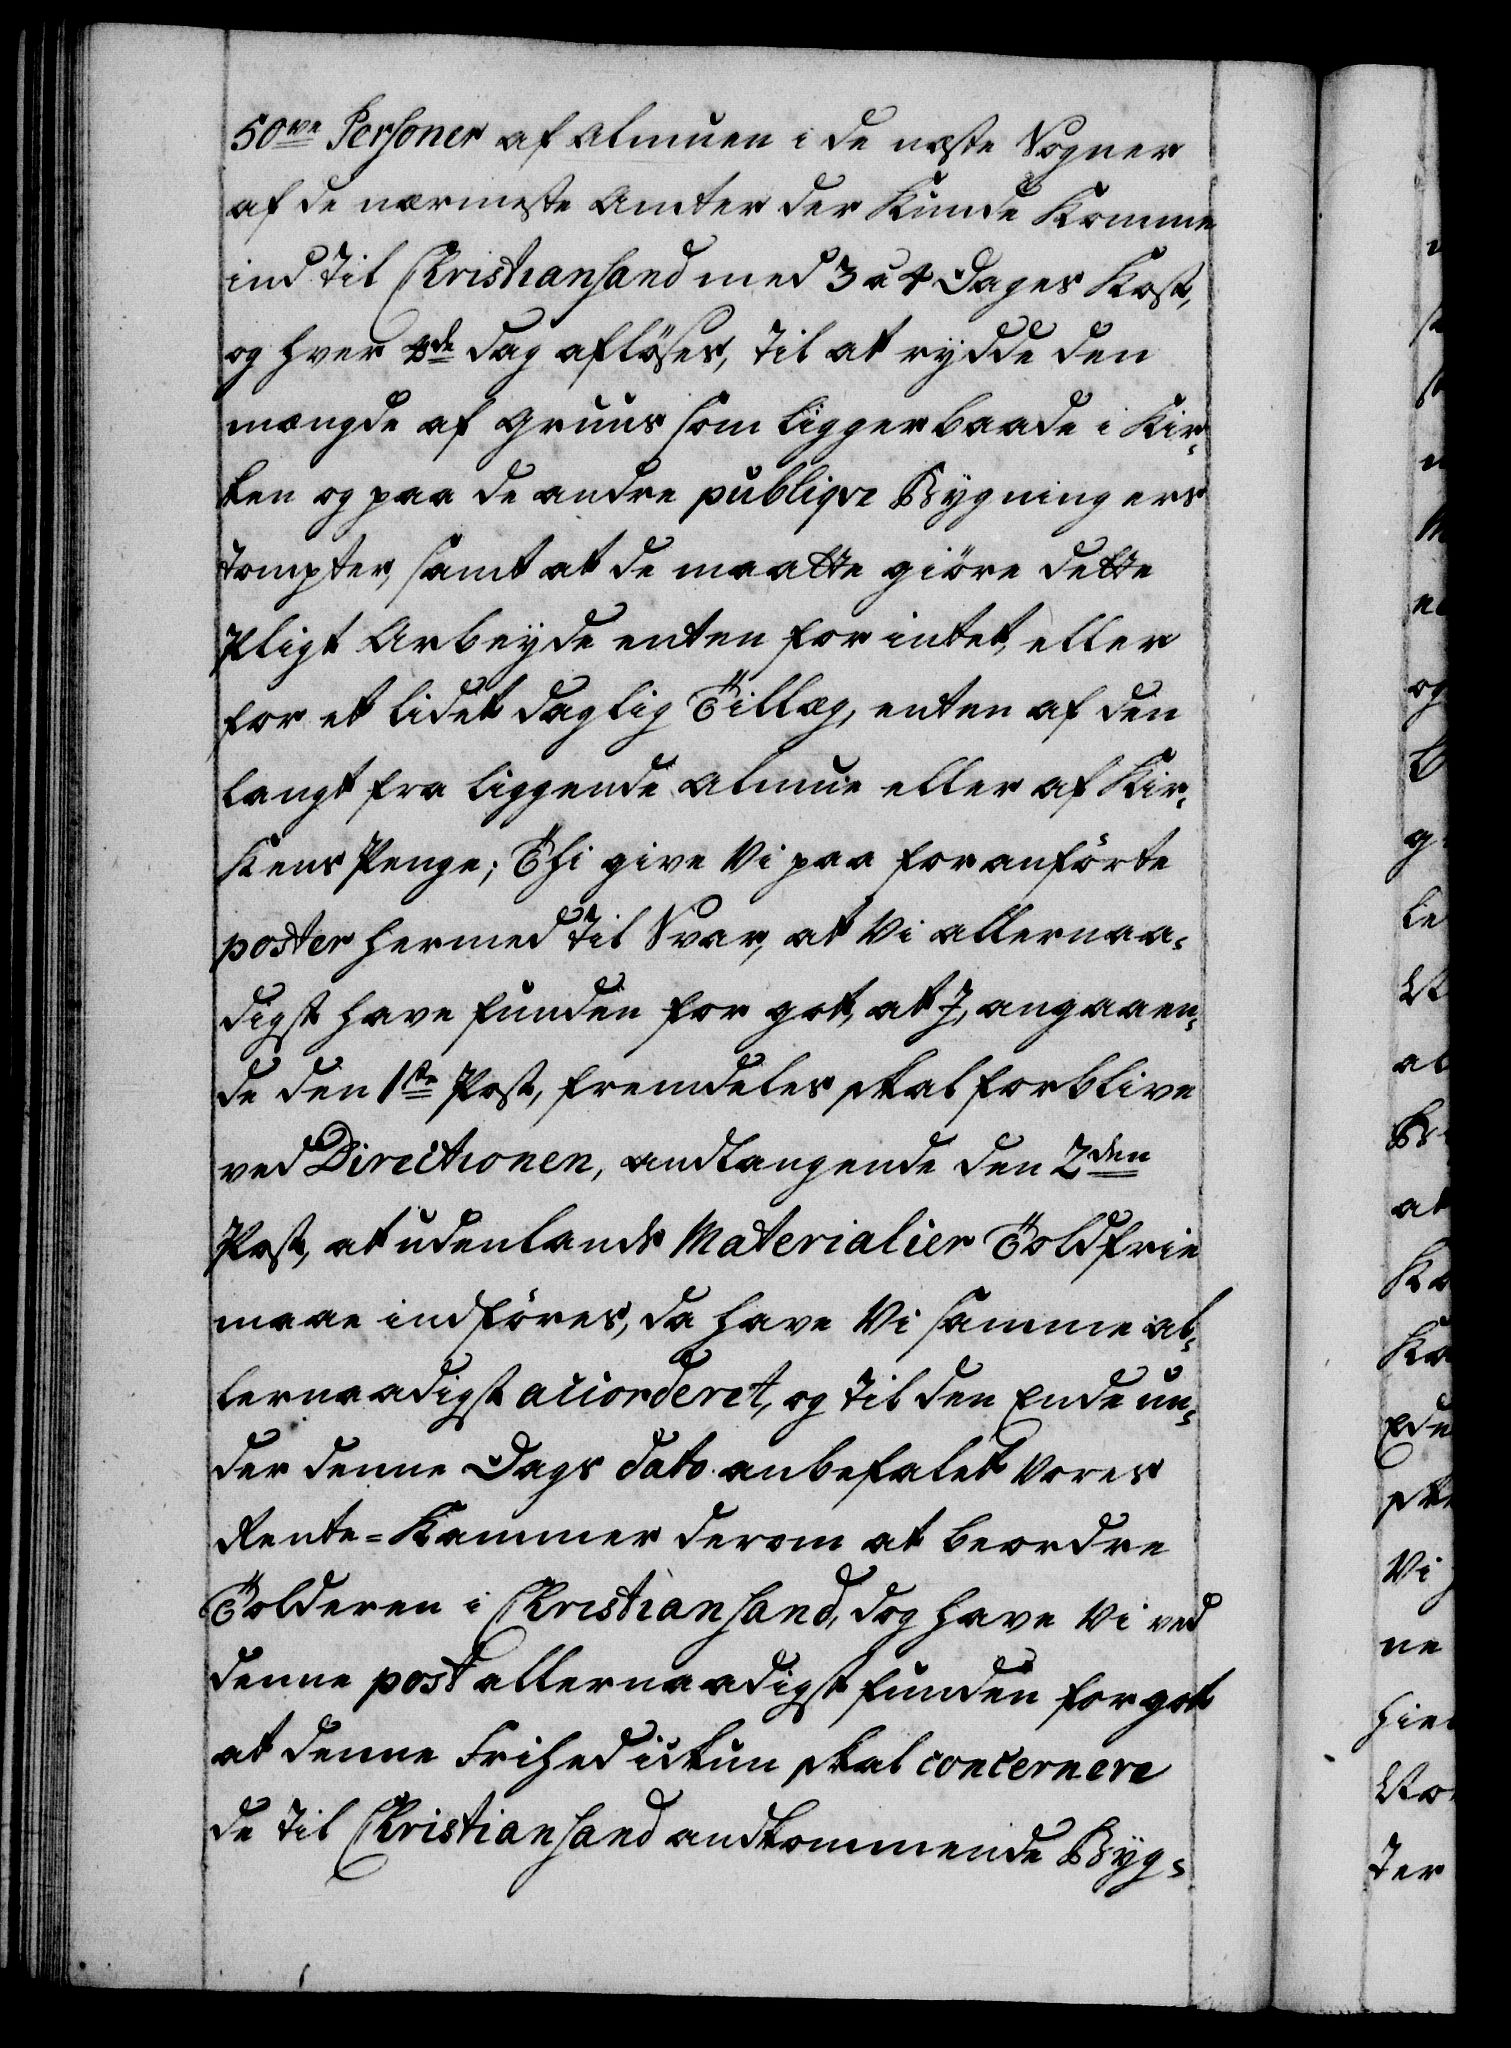 50ve Personer af Almuen i de næste Sogner
af de nærmeste Amter der kunde komme
ind til Christiansand med 3 a 4 Dages Kost,
og hver 4de Dag aflöses, til at rydde den
mængde af Gruus som ligger baade i Kir-
ken og paa de andre publiqve Bygningers
Tompter, samt at de maatte giöre dette
Pligt Arbeyde enten for intet, eller
for et lidet daglig Tillæg, enten af den
langt fra liggende Almue eller af Kir-
kens Penge; Thi give Vi paa foranförte
poster hermed til Svar, at Vi allernaa-
digst have funden for got, at I, angaaen-
de den 1ste Post, fremdeles skal forblive
ved Directionen, andlangende den 2den
Post, at udenlands Materialier Toldfrie
maae indföres, da have Vi samme al-
lernaadigst accorderet, og til den Ende un-
der denne Dags dato anbefalet Vores
Rente-Kammer derom at beordre
Tolderen i Christiansand, dog have Vi ved
denne post allernaadigst funden for got
at denne Frihed ickun skal concernere
de til Christiansand andkommende Byg-